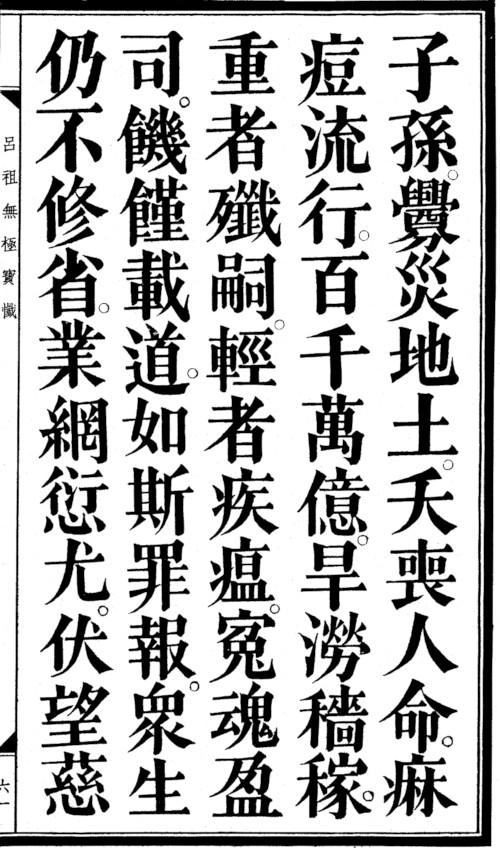 子孫。釁災地土。夭喪人命。痳
痘流行。百千萬億。旱澇穡稼。
重者殲嗣。輕者疾瘟。寃魂盈
司。饑饉載道。如斯罪報。眾生
仍不修省。業網愆尤。伏望慈
呂祖無極寶懺
六一